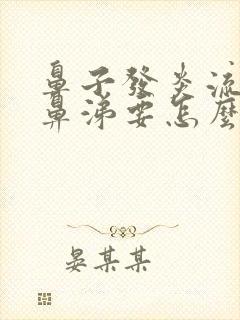 鼻子發炎流
鼻涕要怎麼
晏某某